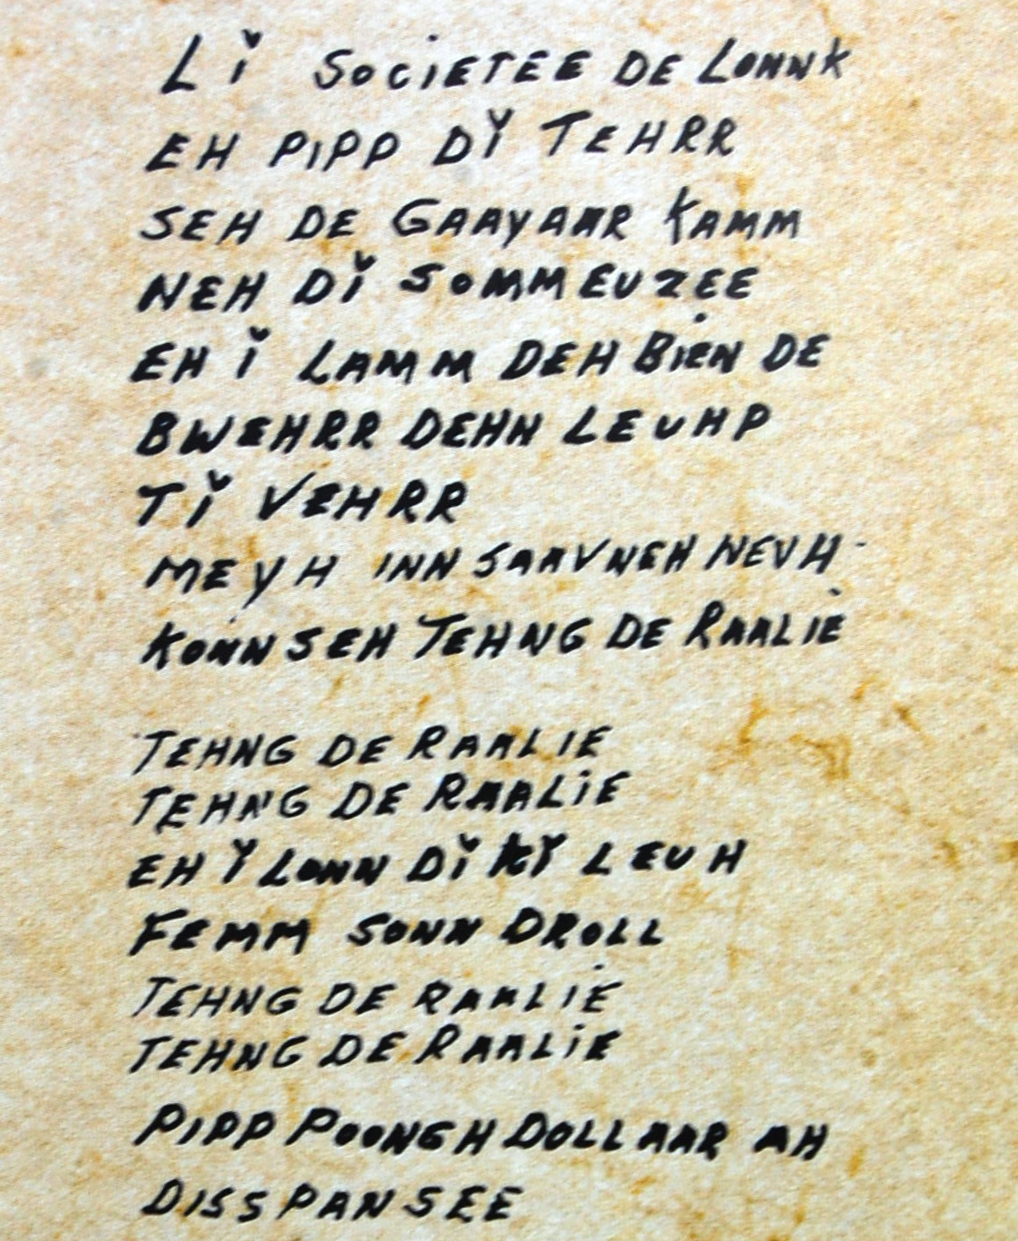 LǏ SOCIETEE DE LONNK
EH PIPP DY̌ TEHRR
SEH DE GAAYAAR KAMM
NEH DǏ SOMMEUZEE
EH Ǐ LAMM DEH BIEN DE
BWEHRR DEHN LEUHP
TǏ VEHRR
MEYH INN SAAVNEH NEUH-
KONNSEH TEHNG DE RAALIE

TEHNG DE RAALIE
TEHNG DE RAALIE
EH Y̌ LONN DǏ KY̌ LEUH
FEMM SONN DROLL
TEHNG DE RAALIE
TEHNG DE RAALIE
PIPP POONGH DOLLAAR AH
DISSPANSEE